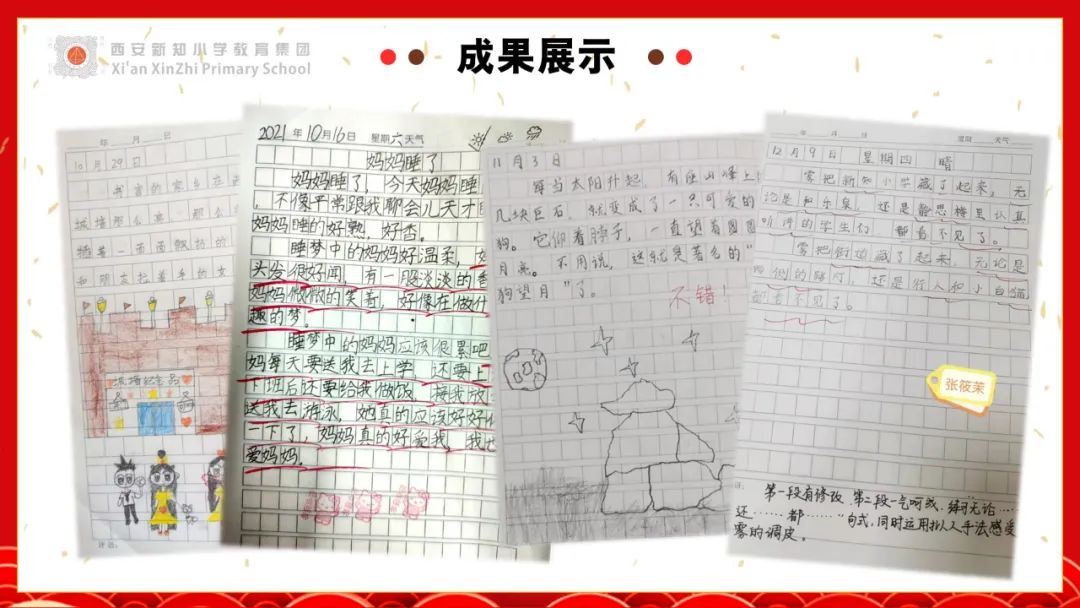 西安新知小学教育集团
Xi'an XinZhi Primary School
成果展示
年 月 日
10月29日
城墙那么
插着一面面飘扬的
和朋友拉着手的女
城墙纪念品
评语：
2021年10月16日 星期六天气
妈妈睡了
妈妈睡了，今天妈妈睡
，不像平常跟我聊会儿天才
妈妈睡的好熟，好香。
睡梦中的妈妈好温柔，
头发很好闻，有一股淡淡的香
妈妈微微的笑着，好像在做什
趣的梦。
睡梦中的妈妈应该很累吧
妈每天要送我去上学，还要上
下班后还要给我做饭，接我放
送我去游泳，她真的应该好好
一下了，妈妈真的好爱我，我也
爱妈妈
11月3日
每当太阳升起，有座山峰上
几块巨石，就变成了一只可爱的
狗。它仰着脖子，一直望着圆圆
月亮。不用说，这就是著名的“
狗望月”了。
不错！
年 月 日 星期 天气
12月9日 星期四 晴
雾把新知小学藏了起来，无
论是和乐泉，还是静思梅里认真
听讲的学生们，都看不见了。
雾把街道藏了起来，无论是
四侧的路灯，还是行人和小白猫
都看不见了。
张筱茉
第一段有修改，第二段一气呵成，练习无论……
还……都……”句式，同时运用拟人手法感受
雾的调皮。